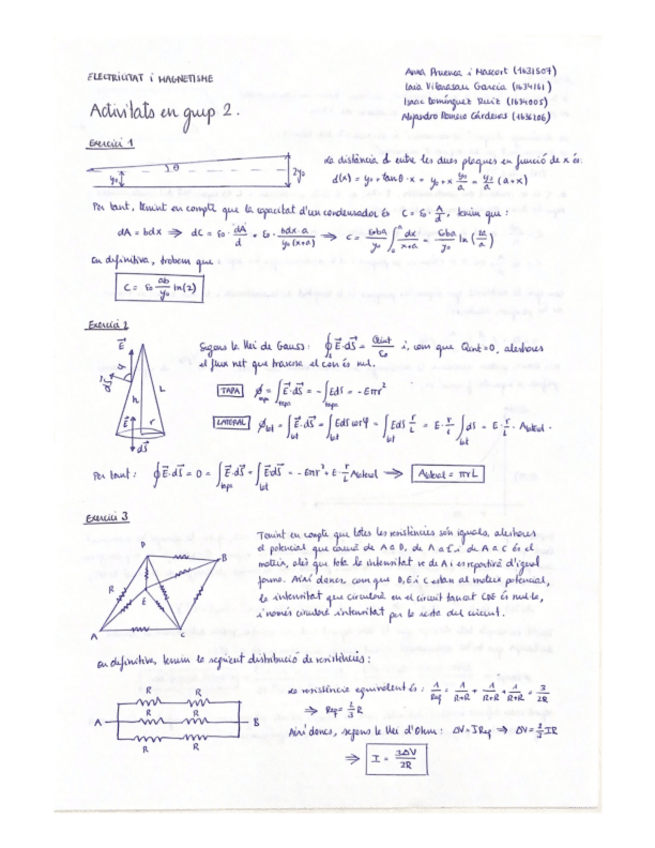 ELECTRICITAT i MAGNETISME
Activitats en grup 2.
Anna Pruenca i Mascort (1631507)
Laia Vilarasau Garcia (1634161)
Isaac Domínguez Ruiz (1634005)
Alejandro Romero Cárdenas (1636106)
Exercici 1
θ
y₀
2y₀
La distància d entre les dues plaques en funció de x és:
d(x) = y₀ + tanθ · x = y₀ + x y₀/a = y₀/a (a+x)
Per tant, tenint en compte que la capacitat d'un condensador és C = ε₀ · A/d, tenim que:
dA = bdx ⇒ dC = ε₀ · dA/d = ε₀ · bdx·a / y₀(x+a) ⇒ C = ε₀ba/y₀ ∫₀ᵃ dx/(x+a) = ε₀ba/y₀ ln(2a/a)
En definitiva, trobem que:
C = ε₀ ab/y₀ ln(2)
Exercici 2
E⃗
φ
dS⃗
h
L
E⃗
r
dS⃗
Segons la llei de Gauss: ∮E⃗·dS⃗ = Qint/ε₀ i, com que Qint=0, aleshores
el flux net que travessa el con és nul.
TAPA ϕtapa = ∫tapa E⃗·dS⃗ = -∫tapa EdS = -Eπr²
LATERAL ϕlat = ∫lat E⃗·dS⃗ = ∫lat EdS cosφ = ∫lat EdS r/L = E · r/L ∫lat dS = E · r/L · Alateral.
Per tant: ∮E⃗·dS⃗ = 0 = ∫tapa E⃗·dS⃗ + ∫lat E⃗·dS⃗ = -Eπr² + E · r/L Alateral → Alateral = πrL
Exercici 3
D
B
R
E
A
C
Tenint en compte que totes les resistències són iguals, aleshores
el potencial que caurà de A a D, de A a E i de A a C és el
mateix, atès que tota la intensitat ve de A i es repartirà d'igual
forma. Així doncs, com que D, E i C estan al mateix potencial,
la intensitat que circularà en el circuit tancat CDE és nul·la,
i només circularà intensitat per la resta del circuit.
En definitiva, tenim la següent distribució de resistències:
R R
A R R B
R R
La resistència equivalent és: 1/Req = 1/R+R + 1/R+R + 1/R+R = 3/2R
⇒ Req = 2/3 R
Així doncs, segons la llei d'Ohm: ΔV = I Req ⇒ ΔV = 2/3 IR
⇒ I = 3ΔV/2R